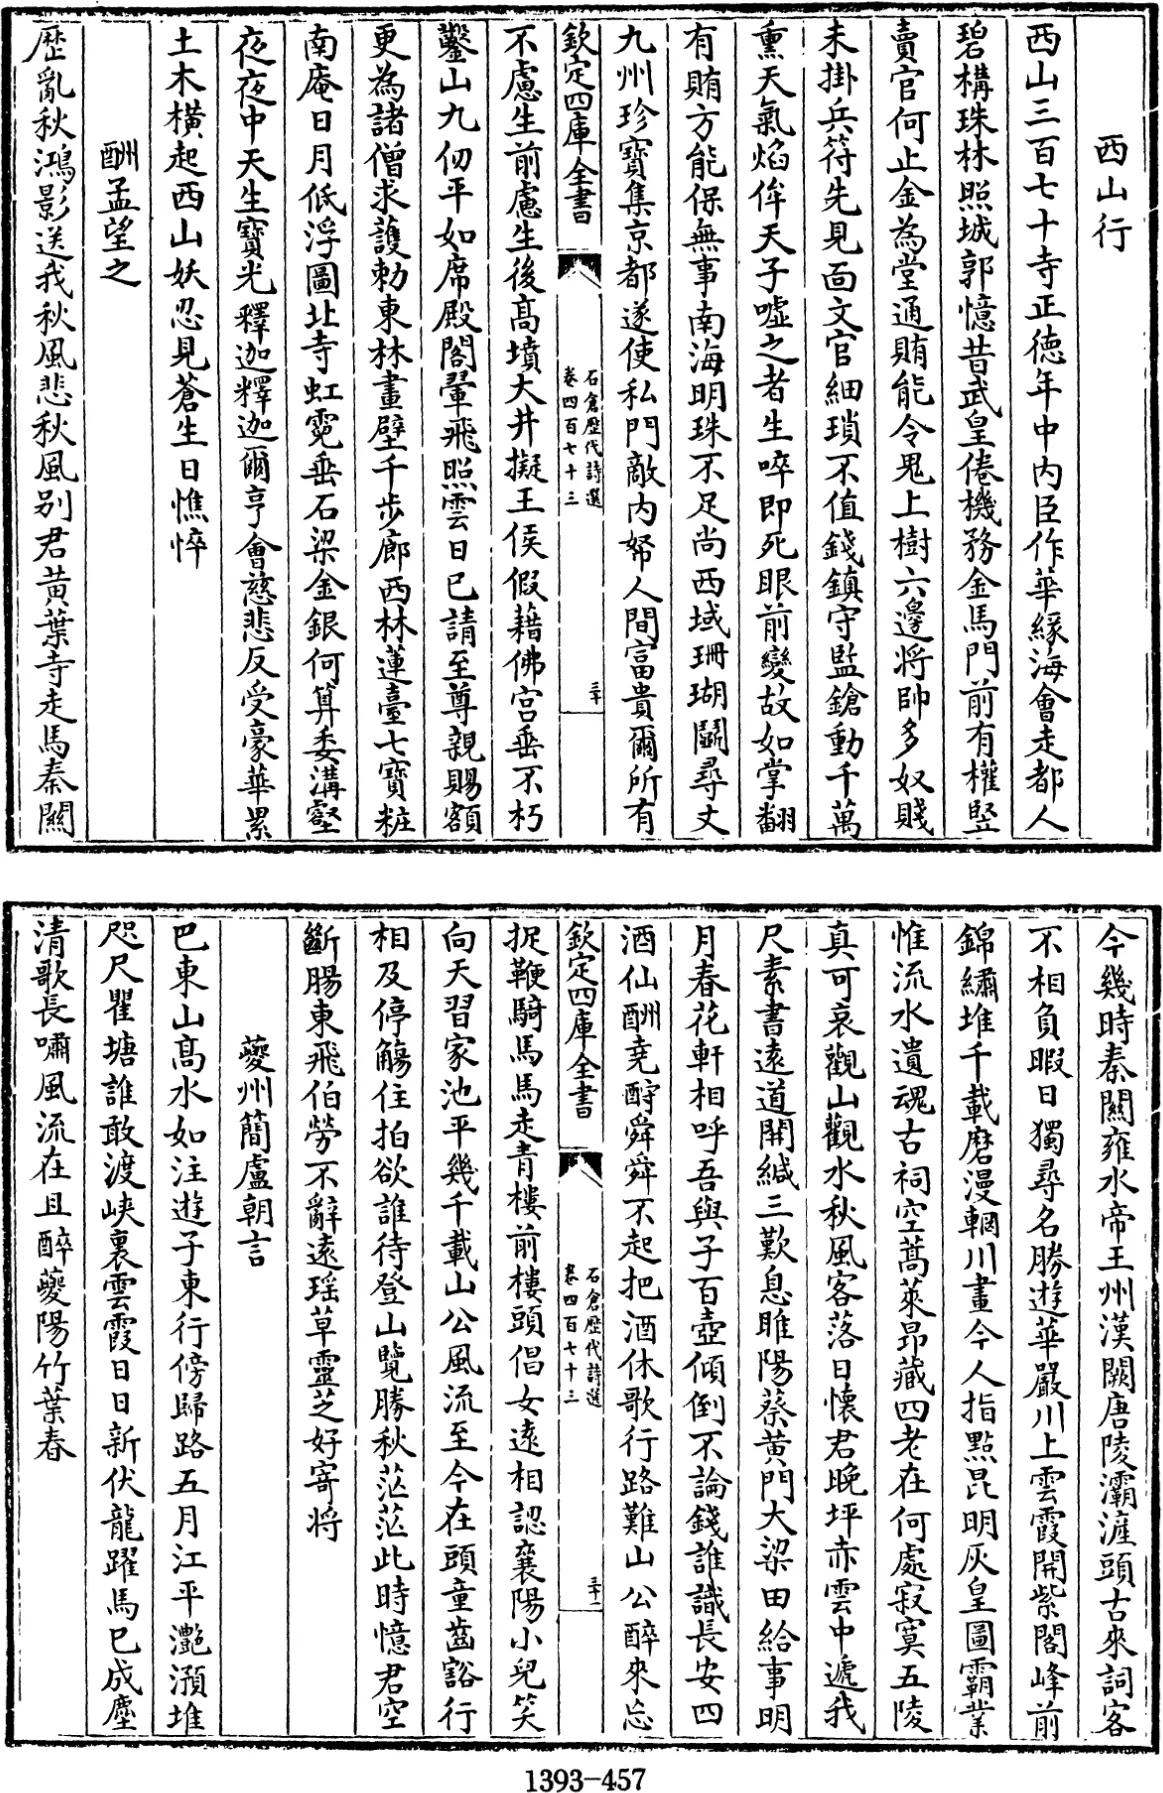 西山行
西山三百七十寺正徳年中内臣作華緣海會走都人
碧構珠林照城郭憶昔武皇倦機務金馬門前有權竪
賣官何止金為堂通賄能令鬼上樹六邊將帥多奴賤
未掛兵符先見面文官細瑣不值錢鎮守監鎗動千萬
熏天氣焰侔天子噓之者生啐即死眼前變故如掌翻
有賄方能保無事南海明珠不足尚西域珊瑚鬭尋丈
九州珍寶集京都遂使私門敵内帑人間富貴爾所有
欽定四庫全書
石倉歷代詩選
卷四百七十三
三十
不慮生前慮生後髙墳大井擬王侯假藉佛宫垂不朽
鑿山九仞平如席殿閣翬飛照雲日已請至尊親賜額
更為諸僧求護勅東林畫壁千步廊西林蓮臺七寳粧
南庵日月低浮圖北寺虹霓垂石梁金銀何算委溝壑
夜夜中天生寳光釋迦釋迦爾亨會慈悲反受豪華累
土木横起西山妖忍見蒼生日憔悴
酬孟望之
歷亂秋鴻影送我秋風悲秋風别君黄葉寺走馬秦關
今幾時秦關雍水帝王州漢闕唐陵灞滻頭古來詞客
不相負暇日獨尋名勝遊華嚴川上雲霞開紫閣峰前
錦繡堆千載磨漫輞川畫今人指點昆明灰皇圖霸業
惟流水遺魂古祠空蒿萊昴藏四老在何處寂寞五陵
真可哀觀山觀水秋風客落日懷君晚坪赤雲中遞我
尺素書遠道開緘三歎息睢陽蔡黄門大梁田給事明
月春花軒相呼吾與子百壺傾倒不論錢誰識長安四
酒仙酬堯酹舜舜不起把酒休歌行路難山公醉來忘
欽定四庫全書
石倉歷代詩選
卷四百七十三
三十一
捉鞭騎馬馬走青樓前樓頭倡女遠相認襄陽小兒笑
向天習家池平幾千載山公風流至今在頭童齒豁行
相及停觴住拍欲誰待登山覽勝秋茫茫此時憶君空
斷腸東飛伯勞不辭遠瑶草靈芝好寄將
夔州簡盧朝言
巴東山髙水如注遊子東行傍歸路五月江平灔澦堆
咫尺瞿塘誰敢渡峽裏雲霞日日新伏龍躍馬已成塵
清歌長嘯風流在且醉夔陽竹葉春
1393-457